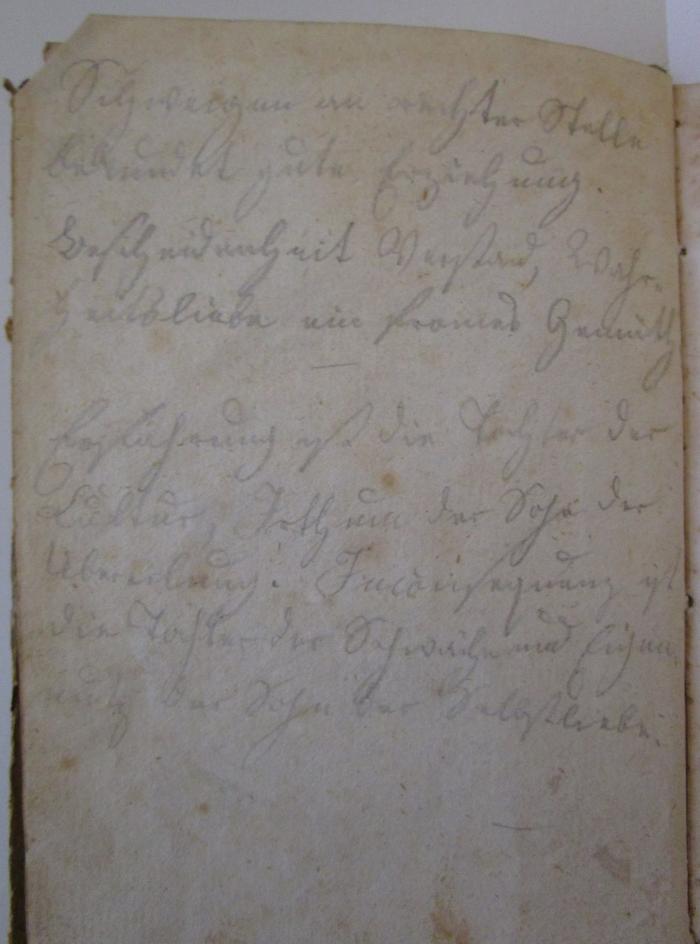 Schweigen an rechter Stelle
bekundet gute Erziehung.
Bescheidenheit Verstad, Wahr-
heitsliebe ein fromes Gemüth
Erfahrung ist die Tochter der
Cultur, Irthum der Sohn der
Übereilung. Inconsequenz ist
die Tochter der Schwäche und Eigen-
nutz der Sohn der Selbstliebe.